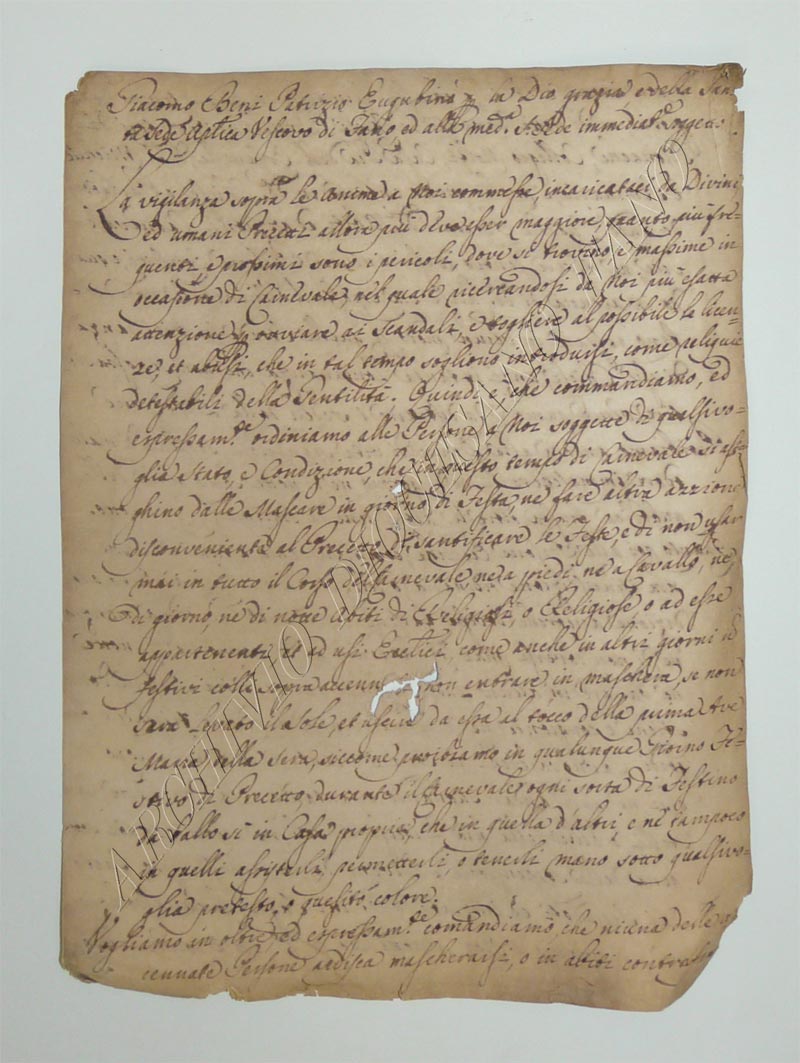 Giacomo Beni Patrizio Eugubino p la Dio grazia e della San-
ta Sede Aplica Vescovo di Fano ed alla med.ª S. Sede immediat.e Soggetto
La vigilanza sopra le anime a Noi commesse, incaricataci da Divini,
ed umani Precetti allora più deve esser maggiore, quanto più fre-
quenti, e prossimi sono i pericoli, dove si trovino, e massime in
occasione di Carnevale, nel quale ricercandosi da Noi più esatta
attenzione p ovviare ai Scandali, e togliere al possibile le licen-
ze, et abusi, che in tal tempo sogliono introdursi, come reliquie
detestabili della Gentilità. Quindi è, che commandiamo, ed
espressam.te ordiniamo alle Persone a Noi soggette di qualsivo-
glia Stato, e Condizione, che in questo tempo di Carnevale si aste-
ghino dalle Mascare in giorno di Festa, ne fare altra azzione
disconveniente al Precetto di santificare le Feste, e di non usar
mai in tutto il Corso del Carnevale, ne a piedi, ne a Cavallo, ne
di giorno, ne di notte Abiti di Religiosi, o Religiose o ad esse
appartenenti, et ad usi Ecclici, come anche in altri giorni
festivi colla sopra non entrare in maschera, se non
sarà Levato il Sole, et uscir da essa al tocco della prima Ave
Maria della sera, siccome proibiamo in qualunque Giorno Fe-
stivo di Precetto durante il Carnevale ogni sorta di Festino
da ballo sì in Casa propria, che in quella d'altri, e nè tampoco
in quelli assisterli, permetterli, o tenerli mano sotto qualsivo-
glia pretesto, o quesito colore.
Vogliamo in oltre, ed espressam.te comandiamo, che niuna delle
cennate Persone ardisca mascherarsi, o in abiti
ARCHIVIO DIOCESANO FANO